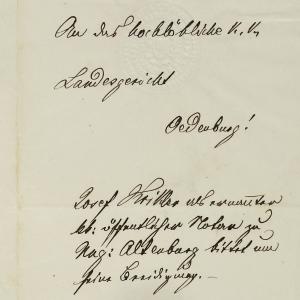 An das hochlöbliche k. k.
Landesgericht
Oedenburg!
Josef Krikler als ernannter
kk: öffentlicher Notar zu
Ung: Altenburg bittet um
seine Beeidigung. –